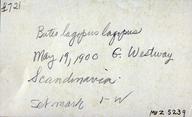 £721
Buteo lagopus lagopus
May 19, 1900 G. Westway
Scandinavia.
Set mark 1-W
MVZ 5239